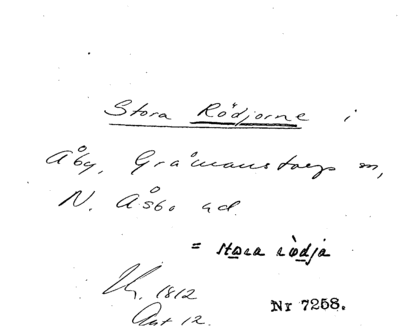 Stora Rödjorne i
Åby, Gråmanstorps sn,
N. Åsbo hd.
= stora rödja
1812
Akt 12.
Nr 7258.